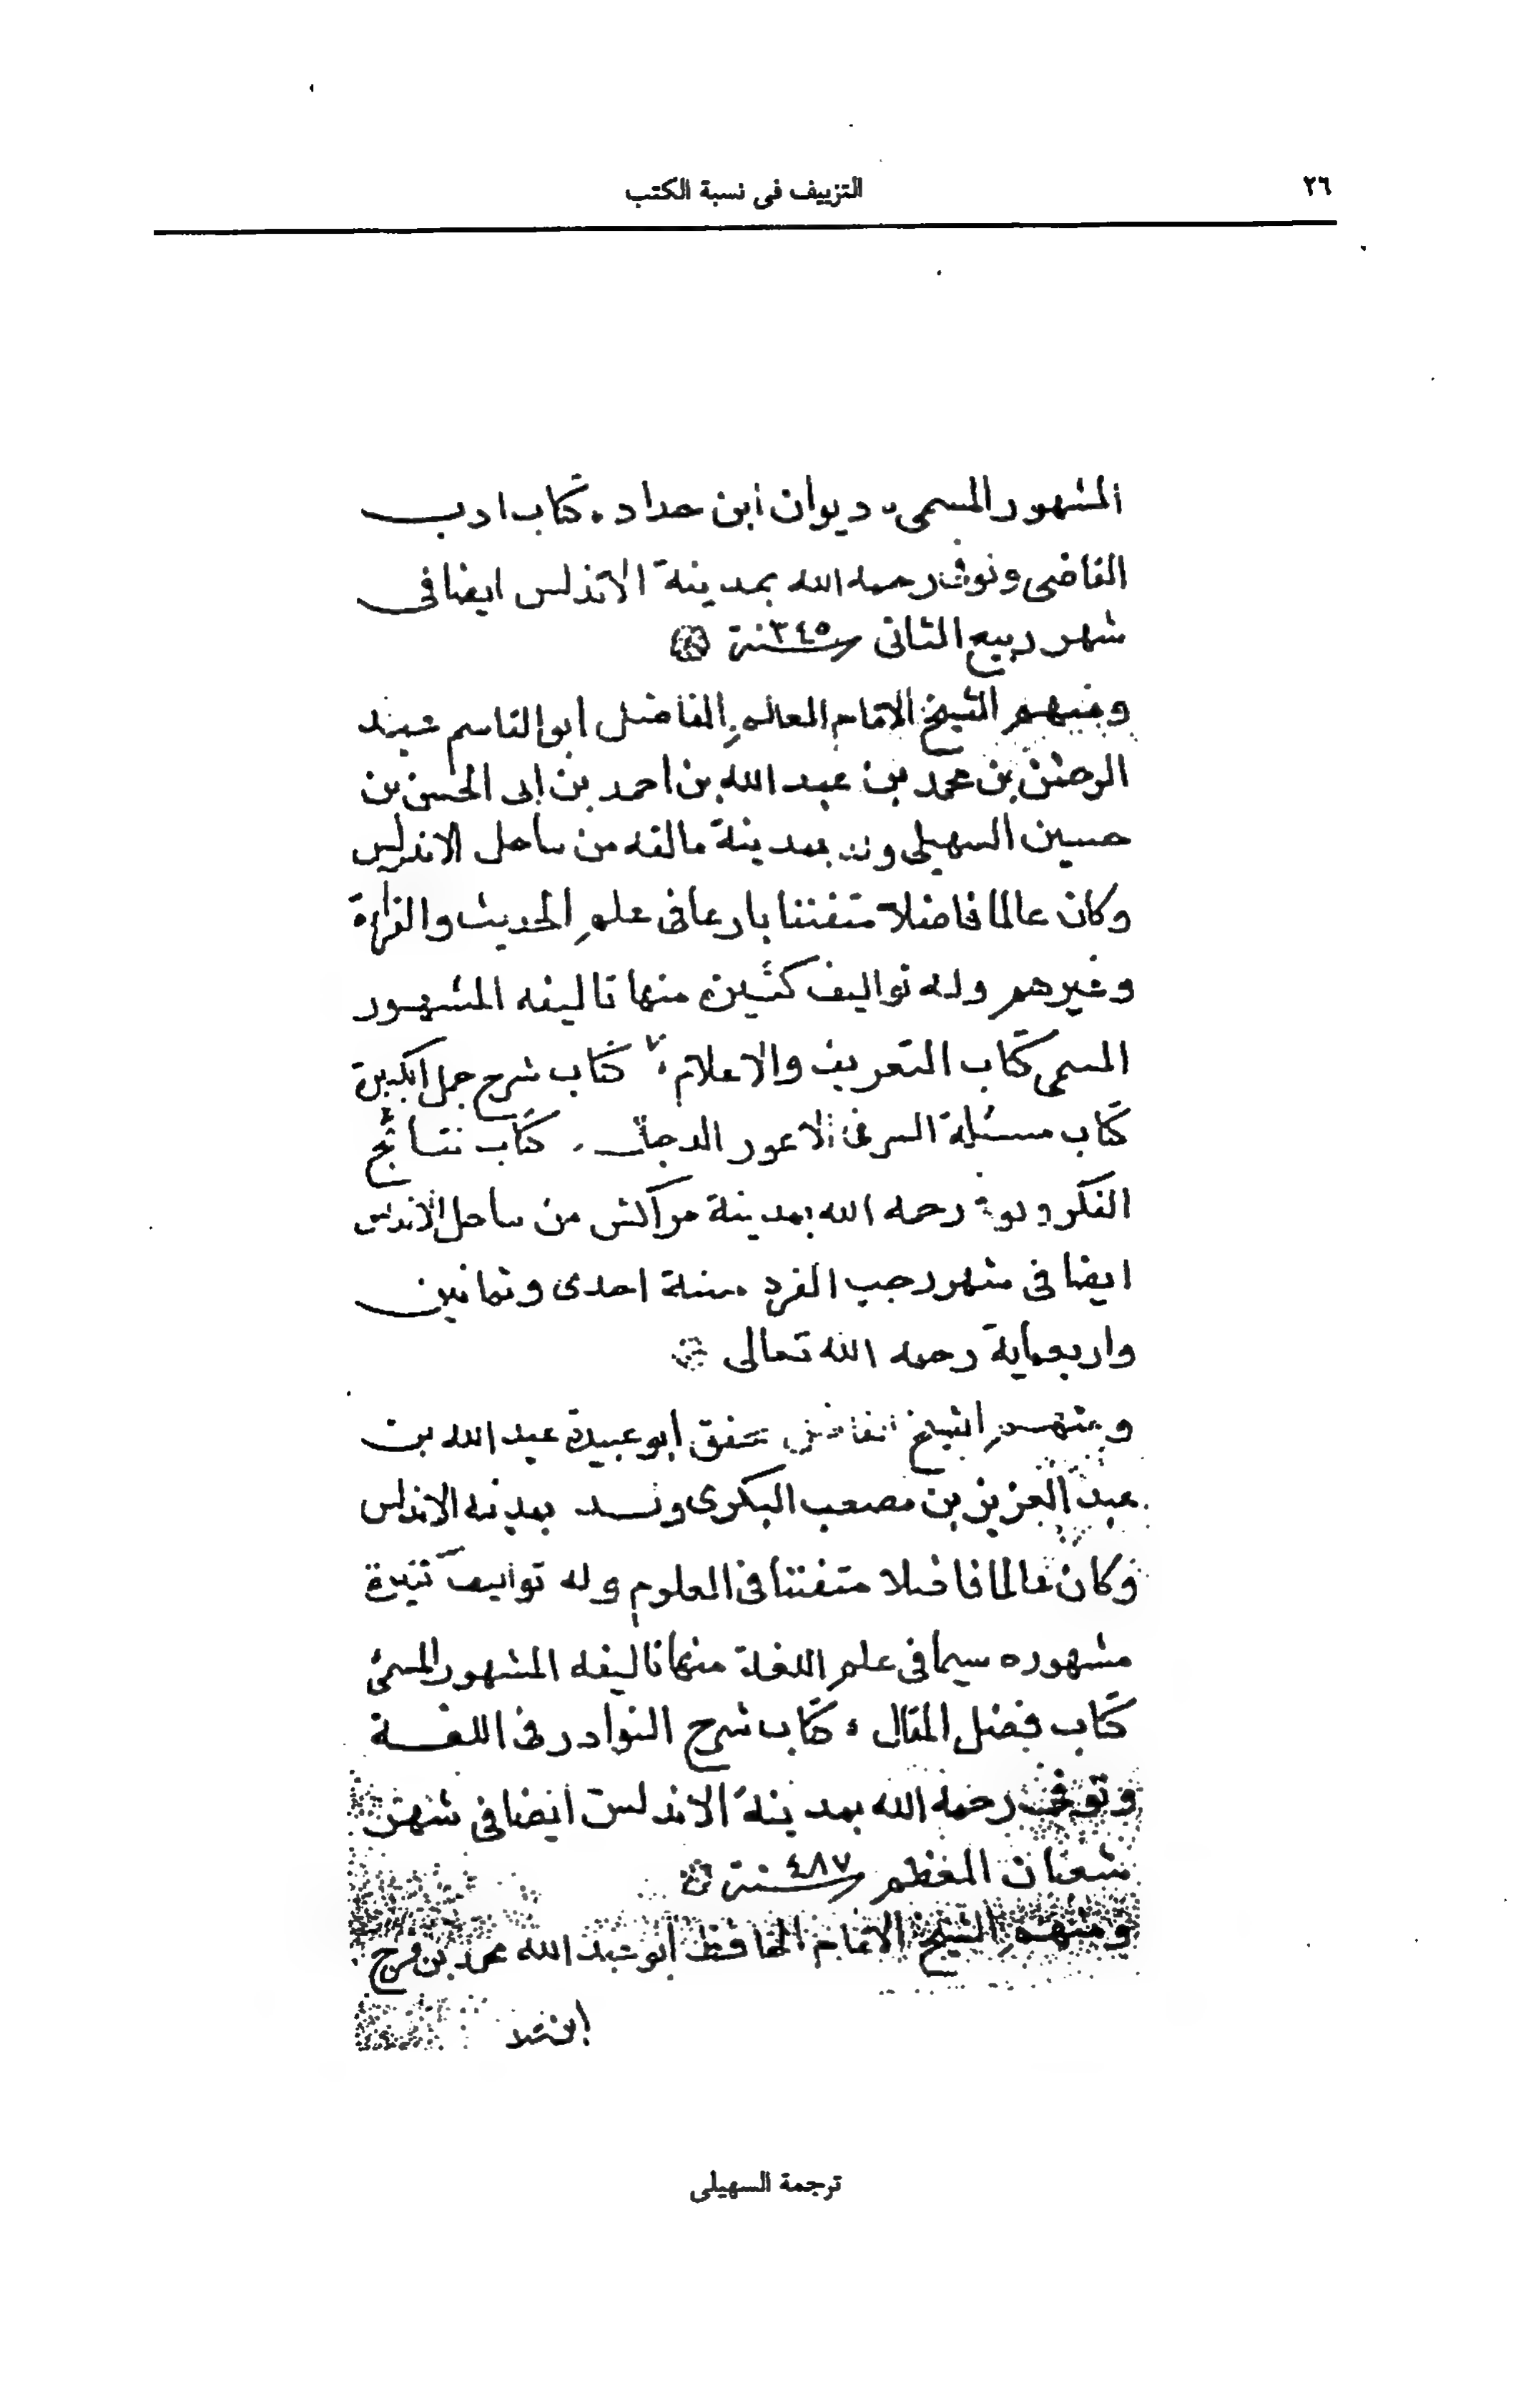 ٢٦
التزييف في نسبة الكتب
المشهور المسمى، ديوان ابن حداد . كتاب ادب
القاضى وتوفى رحمه الله بمدينة الاندلس ايضا فى
شهر ربيع الثانى سنة ٣٤٥
ومنهم الشيخ الامام العالم الفاضل ابو القاسم عبد
الرحمن بن محمد بن عبد الله بن احمد بن ابى الحسن بن
حسين السهيلى ولد بمدينة مالقه من ساحل الاندلس
وكان عالما فاضلا متفننا بارعا فى علم الحديث والقراءة
وغيرهم وله تواليف كثيرة منها تاليفه المشهور
المسمى كتاب التعريف والاعلام، كتاب شرح جمل الكبيرة
كتاب مسئلة السر فى الاعور الدجال . كتاب نتائج
الفكر وتوفى رحمه الله بمدينة مراكش من ساحل الاندلس
ايضا فى شهر رجب الفرد سنة احدى وثمانين
واربعماية رحمه الله تعالى
ومنهم الشيخ الفاضل المحقق ابو عبيدة عبد الله بن
عبد العزيز بن مصعب البكرى ولد بمدينه الاندلس
وكان عالما فاضلا متفننا فى العلوم وله تواليف كثيرة
مشهوره سيما فى علم اللغة منها تاليفه المشهور المسمى
كتاب فصل المقال ، كتاب شرح النوادر فى اللغة
وتوفى رحمه الله بمدينة الاندلس ايضا فى شهر
شعبان المعظم سنة ٤٨٧
ومنهم الشيخ الامام الحافظ ابو عبد الله محمد بن فرج
ترجمة السهيلى